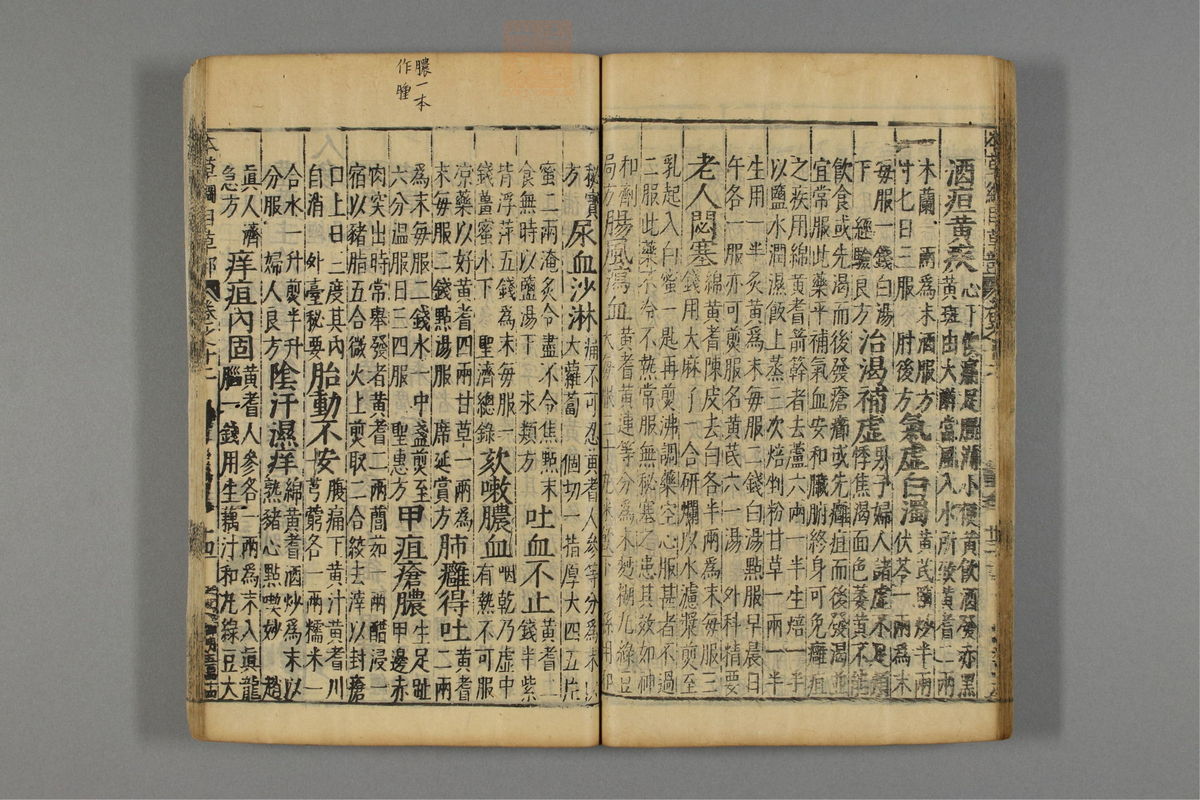 酒疸黃疾 心下懊痛足脛滿小便黃飲酒發赤黑
黃斑由大醉當風入水所致黃耆二兩
木蘭一兩爲末酒服方
寸匕日三服 肘後方 氣虛白濁 黃芪鹽炒半兩
茯苓一兩爲末
每服一錢白湯
下 經驗良方 治渴補虛 男子婦人諸虛不足煩
悸焦渴面色萎黃不能
飲食或先渴而後發瘡癤或先癰疽而後發渴並
宜常服此藥平補氣血安和臟腑終身可免癰疽
之疾用綿黃耆箭簳者去蘆六兩一半生焙一半
以鹽水潤濕飯上蒸三次焙剉粉甘草一兩一半
生用一半炙黃爲末每服二錢白湯點服早晨日
午各一服亦可煎服名黃芪六一湯 外科精要
老人悶塞 綿黃耆陳皮去白各半兩爲末每服三
錢用大麻子一合研爛以水濾漿煎至
乳起入白蜜一匙再煎沸調藥空心服甚者不過
二服此藥不冷不熱常服無秘塞之患其效如神
和劑
局方 腸風瀉血 黃耆黃連等分爲末麪糊丸綠豆
大每服三十丸米飲下 孫用和
膿一本
作腫
秘寶
方 尿血沙淋 痛不可忍黃耆人參等分爲末以
大蘿蔔一個切一指厚大四五片
蜜二兩淹炙令盡不令焦點末
食無時以鹽湯下 永類方 吐血不止 黃耆二
錢半紫
背浮萍五錢爲末每服一
錢薑蜜水下 聖濟總錄 欬嗽膿血 咽乾乃虛中
有熱不可服
涼藥以好黃耆四兩甘草一兩爲
末每服二錢點湯服 席延賞方 肺癰得吐 黃耆
二兩
爲末每服二錢水一中盞煎至
六分溫服日三四服 聖惠方 甲疽瘡膿 生足趾
甲邊赤
肉突出時常舉發者黃耆二兩䕡茹一兩醋浸一
宿以豬脂五合微火上煎取二合絞去滓以封瘡
口上日三度其內
自消 外臺秘要 胎動不安 腹痛下黃汁黃耆川
芎藭各一兩糯米一
合水一升煎半升
分服 婦人良方 陰汗濕痒 綿黃耆酒炒爲末以
熟豬心點喫妙 趙
眞人濟
急方 痒疽內固 黃耆人參各一兩爲末入眞龍
腦一錢用生藕汁和丸綠豆大
本草綱目草部 卷之十二